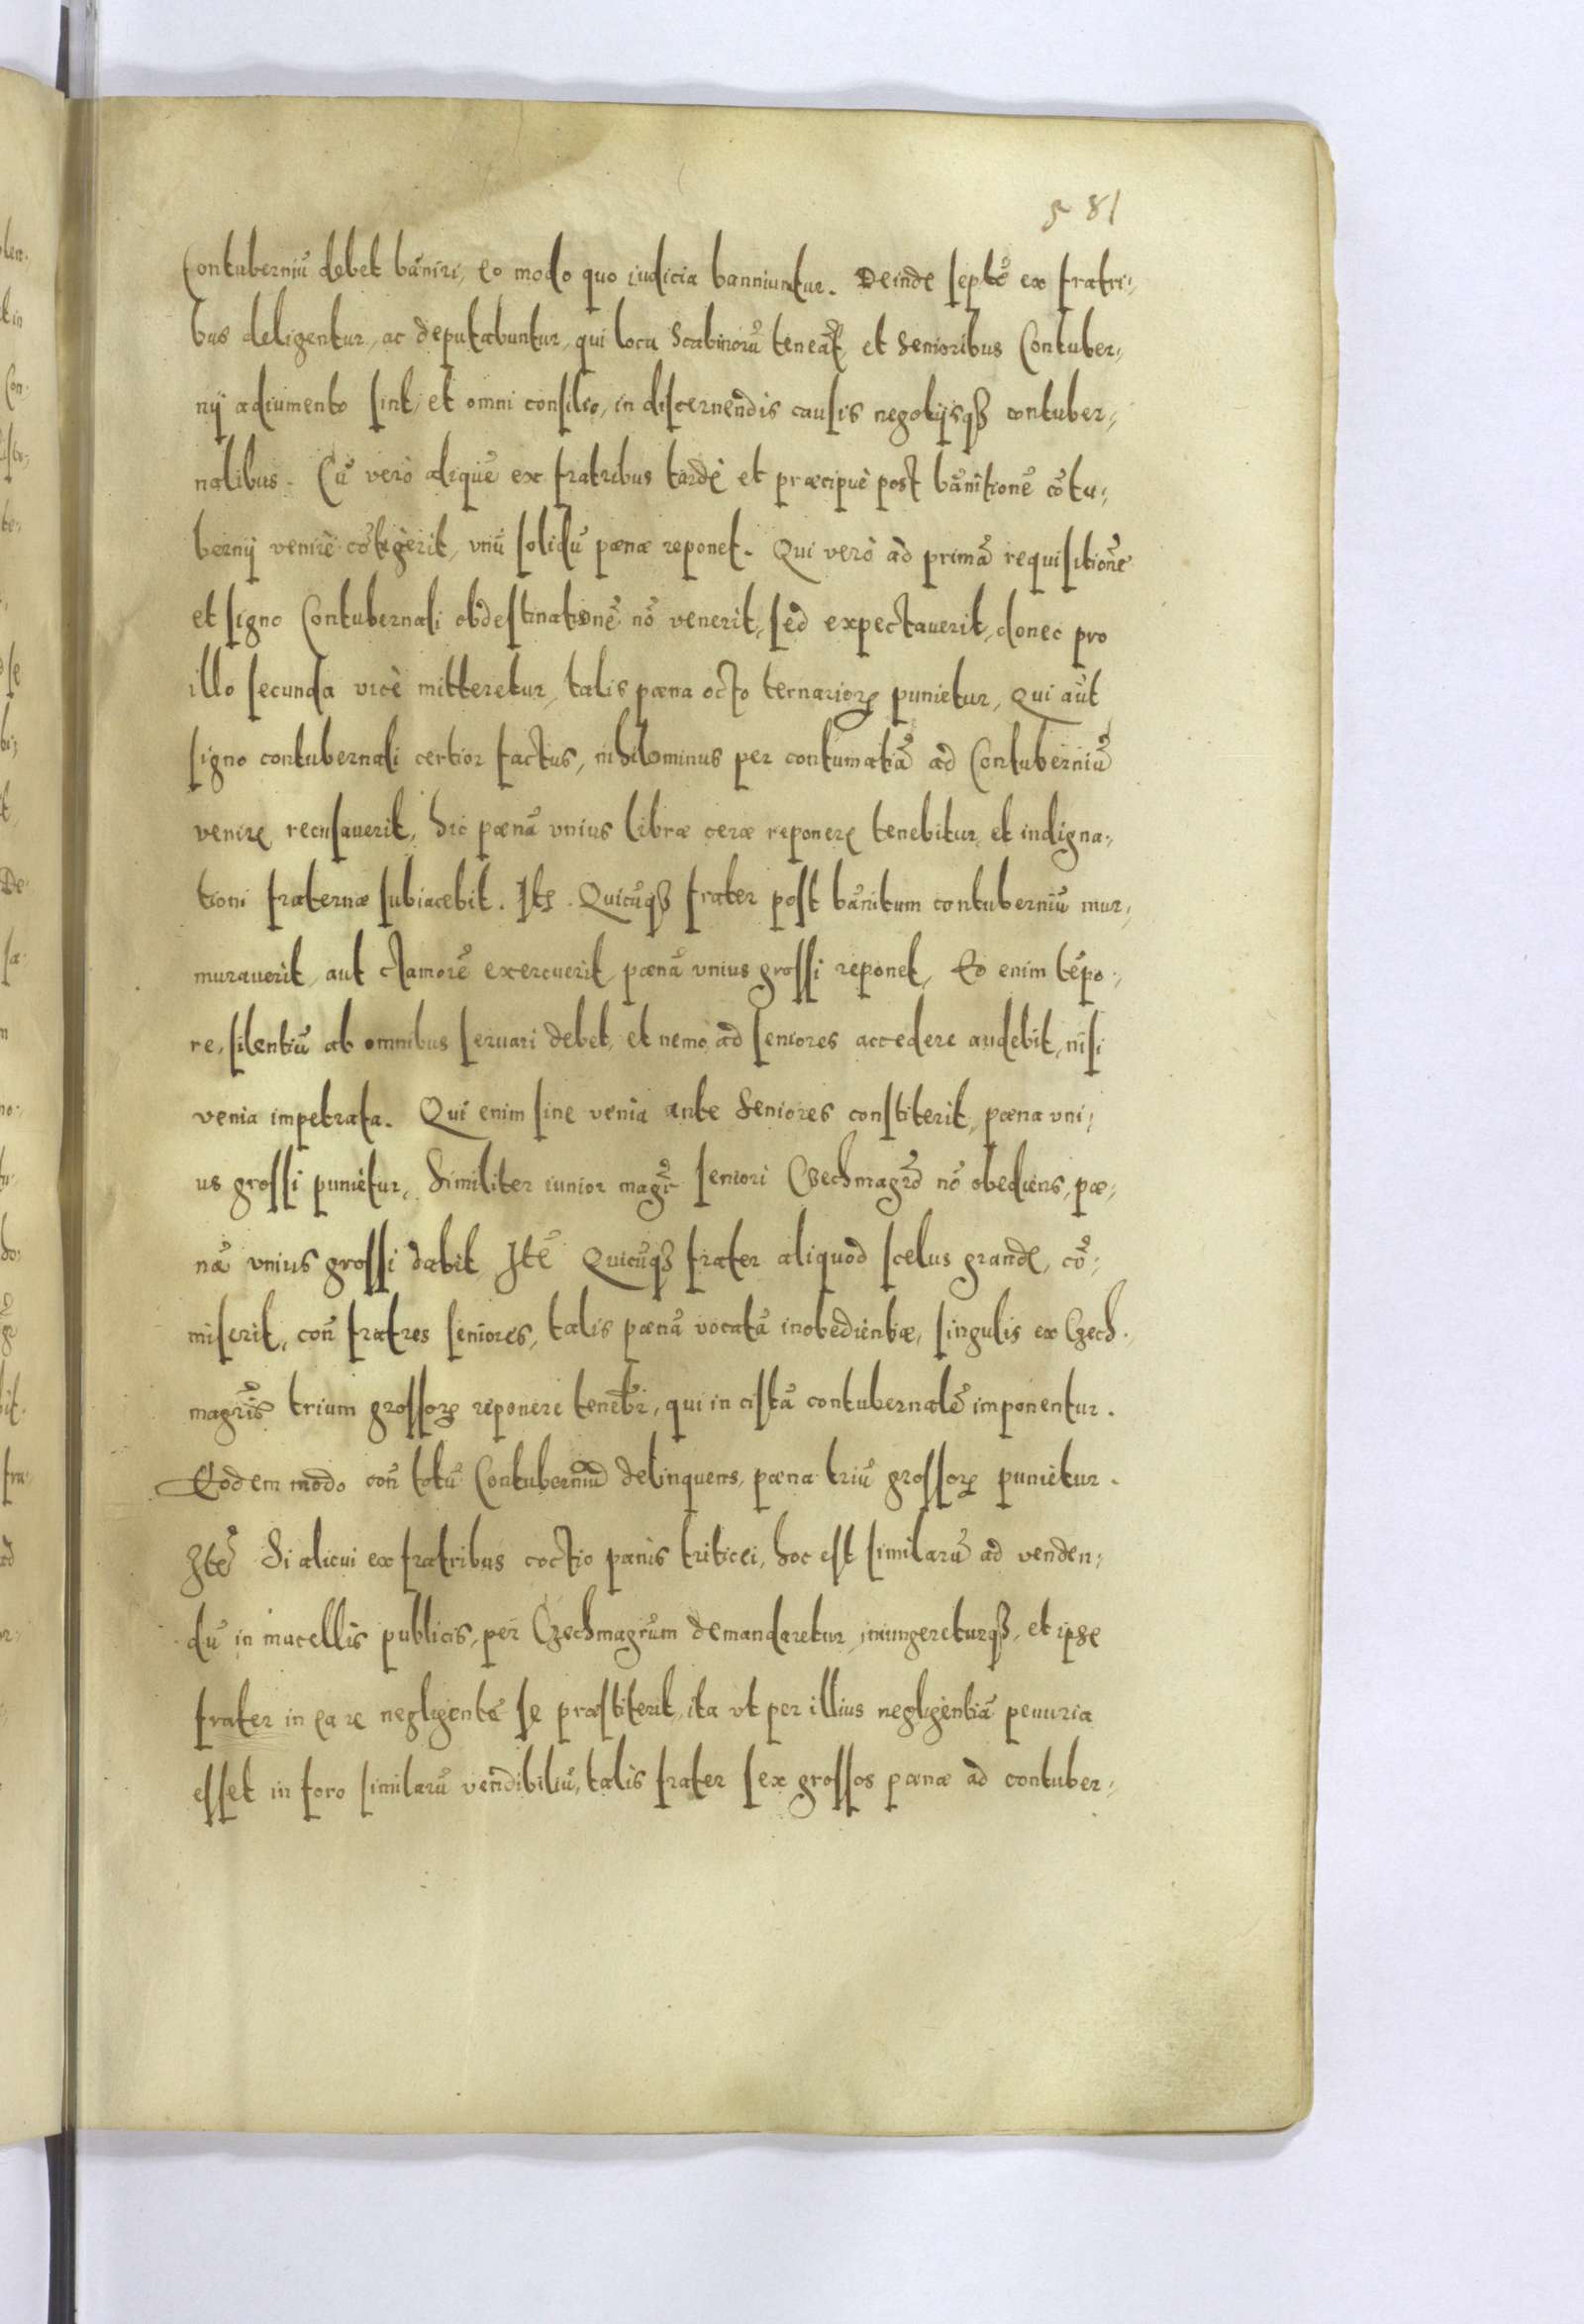 5 81
Contuberniũ debet bãniri, eo modo quo iudicia banniuntur. Deinde septẽ ex fratri,,
bus deligentur, ac deputabuntur, qui locũ Scabinorũ teneãt, et Senioribus Contuber,,
nij adiumento sint, et omni consilio, in discernendis causis negotijsqȝ contuber,,
nalibus. Cũ verò aliquẽ ex fratribus tardè et præcipuè post bãnitionẽ cõtu,,
bernij venire cõtigerit, vnũ solidũ pœnæ reponet. Qui verò ad primã requisitionẽ
et signo Contubernali obdestinationẽ nõ venerit, sed expectauerit, donec pro
illo secunda vice mitteretur, talis pœna octo ternarioꝝ punietur, Qui aũt
signo contubernali certior factus, nihilominus per contumatiã ad Contuberniũ
venire recusauerit, hic pœnã vnius libræ ceræ reponere tenebitur, et indigna,,
tioni fraternæ subiacebit. Itẽ. Quicũqȝ frater post bãnitum contuberniũ mur,,
murauerit, aut clamorẽ exercuerit, pœnã vnius grossi reponet, Eo enim tẽpo,,
re, silentiũ ab omnibus seruari debet, et nemo ad seniores accedere audebit, nisi
venia impetrata. Qui enim sine venia ante Seniores constiterit, pœna vni,,
us grossi punietur, Similiter iunior magr̃ seniori Czechmagrõ nõ obediens, pœ,,
nã vnius grossi dabit, Itẽ Quicũqȝ frater aliquod scelus grande, cõ,,
miserit, con̄ fratres seniores, talis pœnã vocatã inobedientiæ, singulis ex Czech,,
magrĩs trium grossoꝝ reponere tenebr̃, qui in cistã contubernalẽ imponentur.
Eodem modo con̄ totũ Contuberniũ delinquens, pœna triũ grossoꝝ punietur.
Itẽ Si alicui ex fratribus coctio panis triticei, hoc est similarũ ad venden,,
dũ in macellis publicis, per Czechmagrũm demandaretur, iniungereturqȝ, et ipse
frater in ea re negligentẽ se præstiterit, ita vt per illius negligentiã penuria
esset in foro similarũ vendibiliũ, talis frater sex grossos pœnæ ad contuber,,